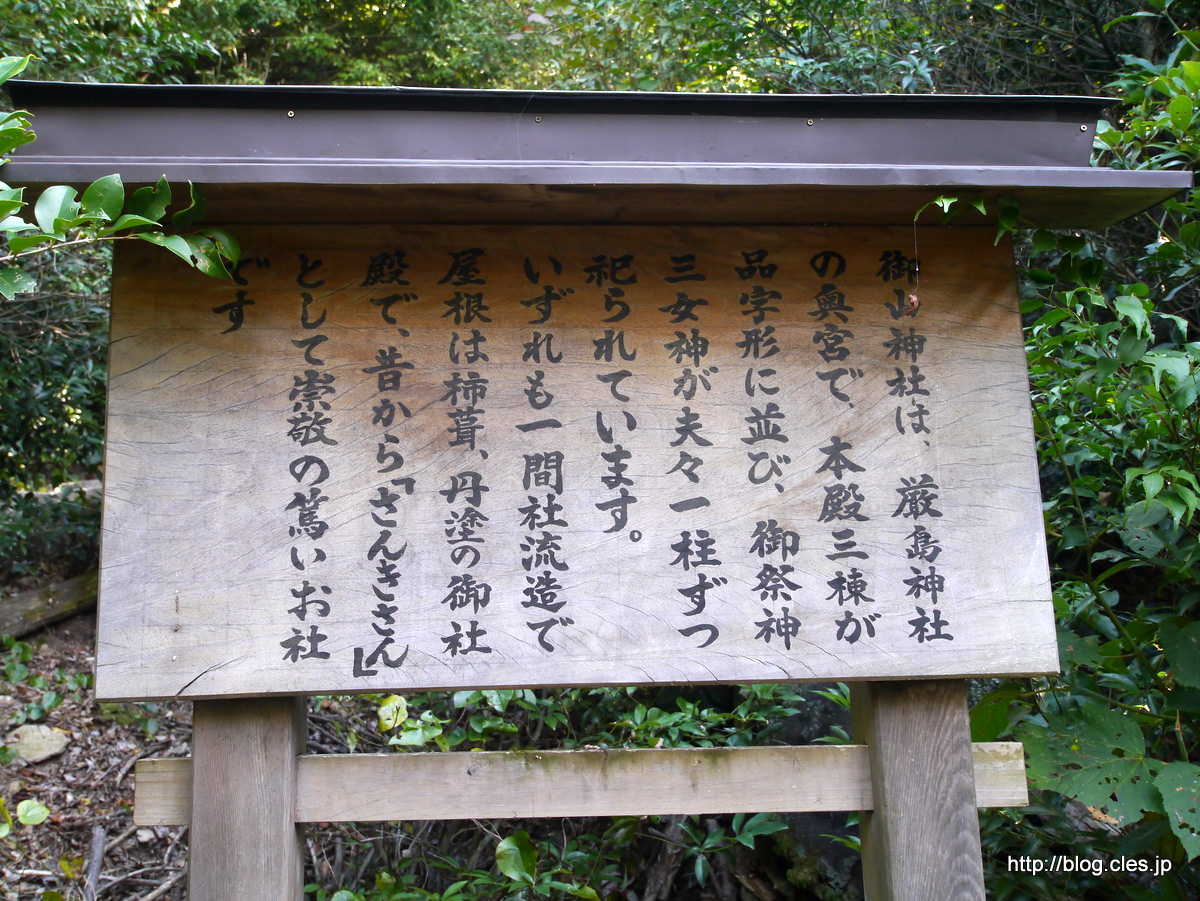 御山神社は、厳島神社
の奥宮で、本殿三棟が
品字形に並び、御祭神
三女神が夫々一柱ずつ
祀られています。
いずれも一間社流造で
屋根は柿葺、丹塗の御社
殿で、昔から「さんきさん」
として崇敬の篤いお社
です
http://blog.cles.jp